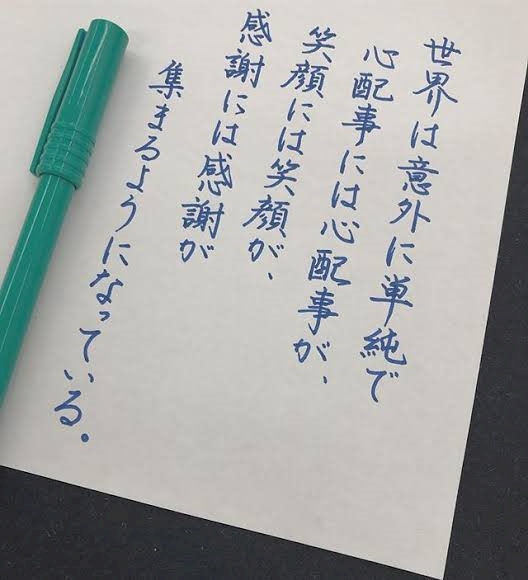 世界は意外に単純で
心配事には心配事が、
笑顔には笑顔が、
感謝には感謝が
集まるようになっている。